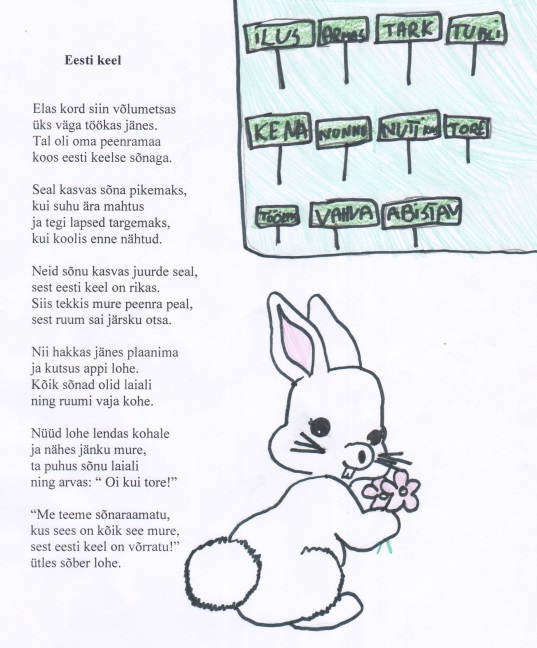 Eesti keel
Elas kord siin võlumetsas
üks väga töökas jänes.
Tal oli oma peenramaa
koos eesti keelse sõnaga.
Seal kasvas sõna pikemaks,
kui suhu ära mahtus
ja tegi lapsed targemaks,
kui koolis enne nähtud.
Neid sõnu kasvas juurde seal,
sest eesti keel on rikas.
Siis tekkis mure peenra peal,
sest ruum sai järsku otsa.
Nii hakkas jänes plaanima
ja kutsus appi lohe.
Kõik sõnad olid laiali
ning ruumi vaja kohe.
Nüüd lohe lendas kohale
ja nähes jänku mure,
ta puhus sõnu laiali
ning arvas: “ Oi kui tore!”
“Me teeme sõnaraamatu,
kus sees on kõik see mure,
sest eesti keel on võrratu!”
ütles sõber lohe.
iLUS ARMAS TARK TUBLI
KENA NUNNU NUTIKAS TORE
VAHVA ABISTAV